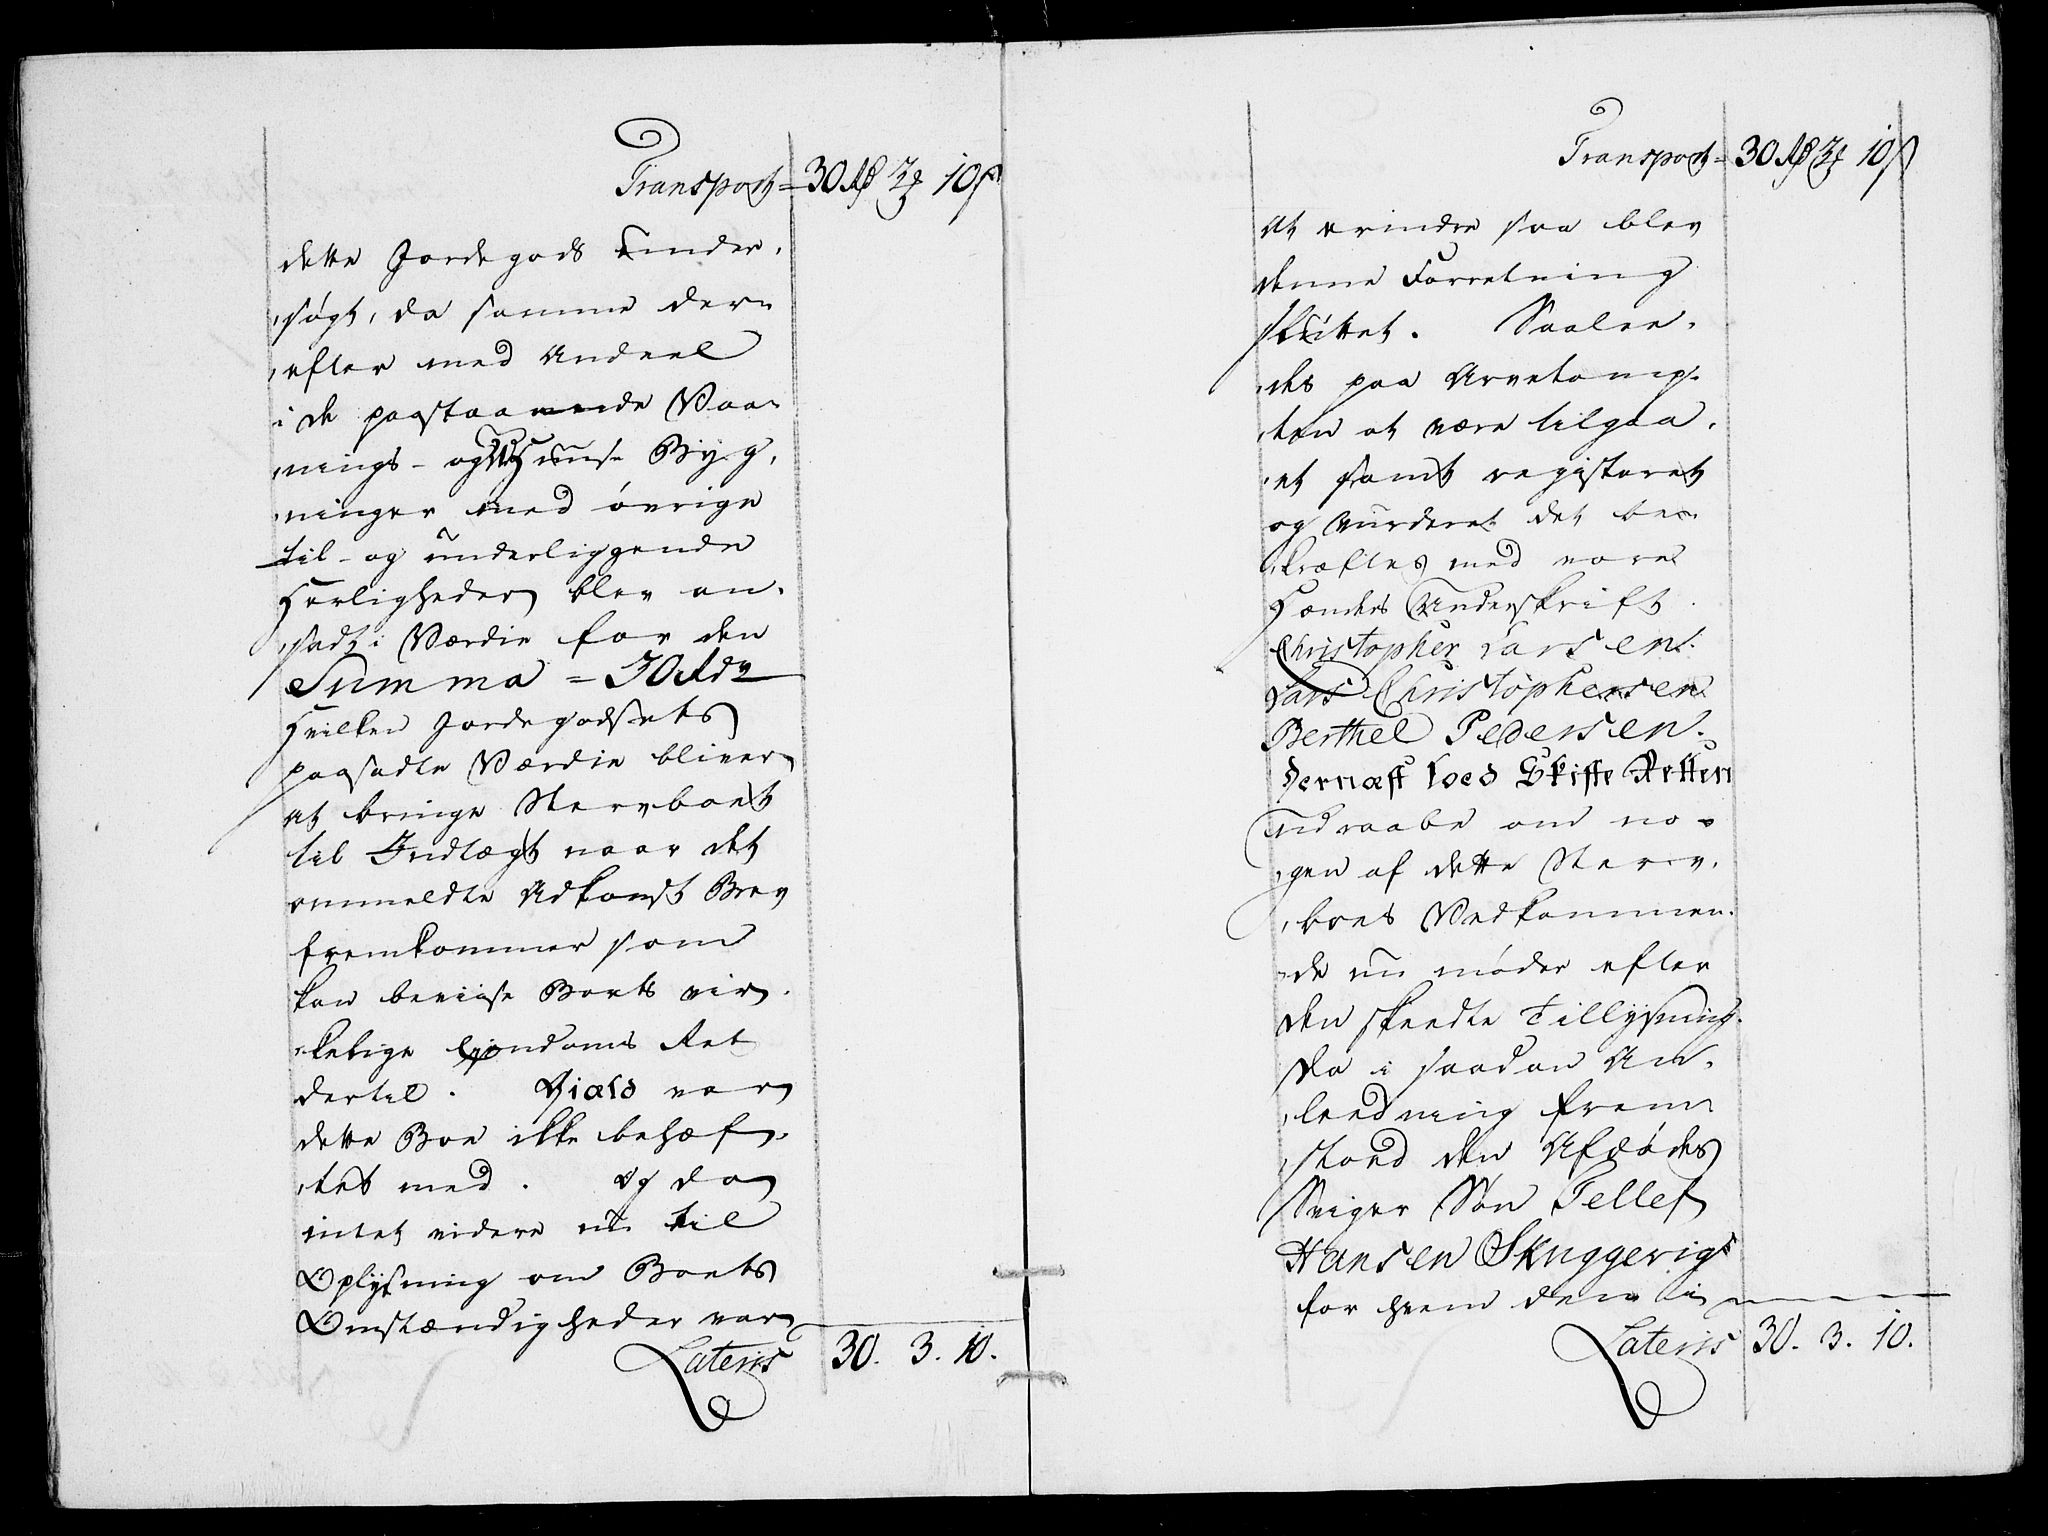 Transport = 30 Rd 3 ₰ 10 s
dette Jordegods under-
søgt, da samme der-
efter med Andeel
i de paastaaende Vaa-
nings- og Uhuuse Byg-
ninger med øvrige
til- og underliggende
Herligheder blev an-
sadt i Værdie for den
Summa = 30 Rdr
Hvilken Jordegodsets
paasadte Værdie bliver
at bringe Stervboet
til Indtægt naar det
ommeldte Adkomst Brev
fremkommer som
kan beviise Boets vir-
kelige Ejendoms Ret
dertil. Giæld var
dette Boe ikke behæf-
tet med. Og da
intet videre nu til
Oplysning om Boets
Omstændigheder var
Lateris 30. 3. 10.
Transport = 30 Rd 3 ₰ 10 s
at erindre saa blev
denne Forretning
sluttet. Saalee-
des paa Arvetomp-
ten at være tilgaa-
et samt registeret
og vurderet det be-
kræftes med vore
Hænders Underskrift.
Christopher Larsen.
Lars Christophersen
Berthel Pedersen.
Dernæst loed Skifte Retten
udraabe om no-
gen af dette Sterv-
boes Vedkommen-
de nu møder efter
den skeedte Tillysning.
Da i saadan An-
leedning frem-
stoed den Afdødes
Sviger Søn Tellef
Hansen Skuggevig
for hvem den i
Lateris 30. 3. 10.